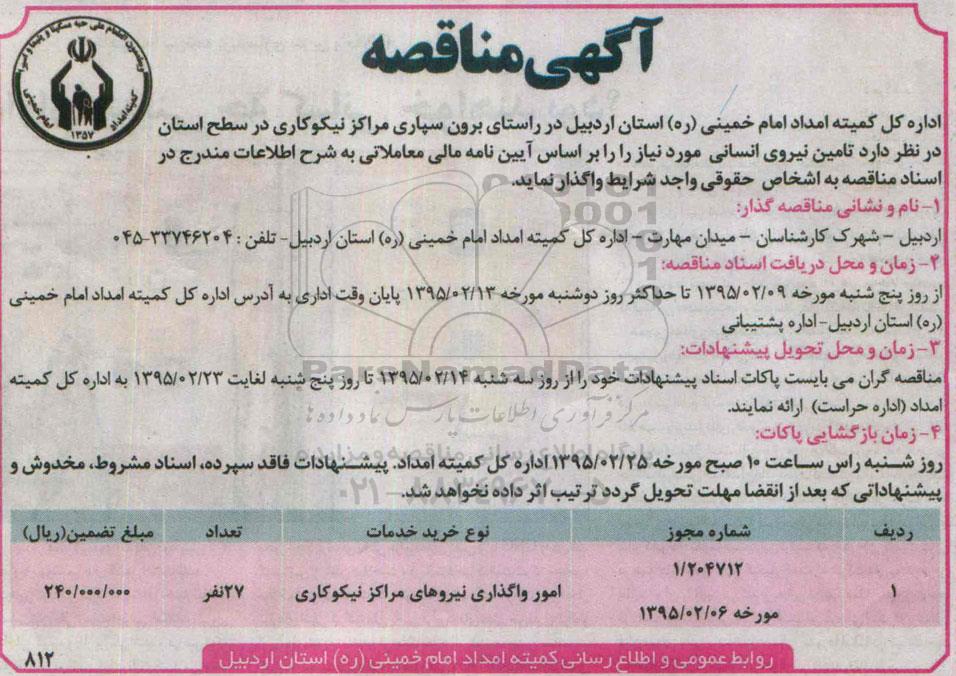 آگهی مناقصه
کمیته امداد امام خمینی
۱۳۵۷
اداره کل کمیته امداد امام خمینی (ره) استان اردبیل در راستای برون سپاری مراکز نیکوکاری در سطح استان
در نظر دارد تامین نیروی انسانی مورد نیاز را را بر اساس آیین نامه مالی معاملاتی به شرح اطلاعات مندرج در
اسناد مناقصه به اشخاص حقوقی واجد شرایط واگذار نماید.
۱- نام و نشانی مناقصه گذار:
اردبیل – شهرک کارشناسان – میدان مهارت – اداره کل کمیته امداد امام خمینی (ره) استان اردبیل- تلفن : ۳۳۷۴۶۲۰۴-۰۴۵
۲- زمان و محل دریافت اسناد مناقصه:
از روز پنج شنبه مورخه ۱۳۹۵/۰۲/۰۹ تا حداکثر روز دوشنبه مورخه ۱۳۹۵/۰۲/۱۳ پایان وقت اداری به آدرس اداره کل کمیته امداد امام خمینی
(ره) استان اردبیل-اداره پشتیبانی
۳- زمان و محل تحویل پیشنهادات:
مناقصه گران می بایست پاکات اسناد پیشنهادات خود را از روز سه شنبه ۱۳۹۵/۰۲/۱۴ تا روز پنج شنبه لغایت ۱۳۹۵/۰۲/۲۳ به اداره کل کمیته
امداد (اداره حراست) ارائه نمایند.
ParsNamadData
مرکز فرآوری اطلاعات پارس نماد داده ها
۴- زمان بازگشایی پاکات:
روز شنبه راس ساعت ۱۰ صبح مورخه ۱۳۹۵/۰۲/۲۵ اداره کل کمیته امداد. پیشنهادات فاقد سپرده، اسناد مشروط، مخدوش و
پیشنهاداتی که بعد از انقضا مهلت تحویل گردد ترتیب اثر داده نخواهد شد.
ردیف شماره مجوز نوع خرید خدمات تعداد مبلغ تضمین(ریال)
۱ ۱/۲۰۴۷۱۲ مورخه ۱۳۹۵/۰۲/۰۶ امور واگذاری نیروهای مراکز نیکوکاری ۲۷نفر ۲۴۰/۰۰۰/۰۰۰
روابط عمومی و اطلاع رسانی کمیته امداد امام خمینی (ره) استان اردبیل
۸۱۲